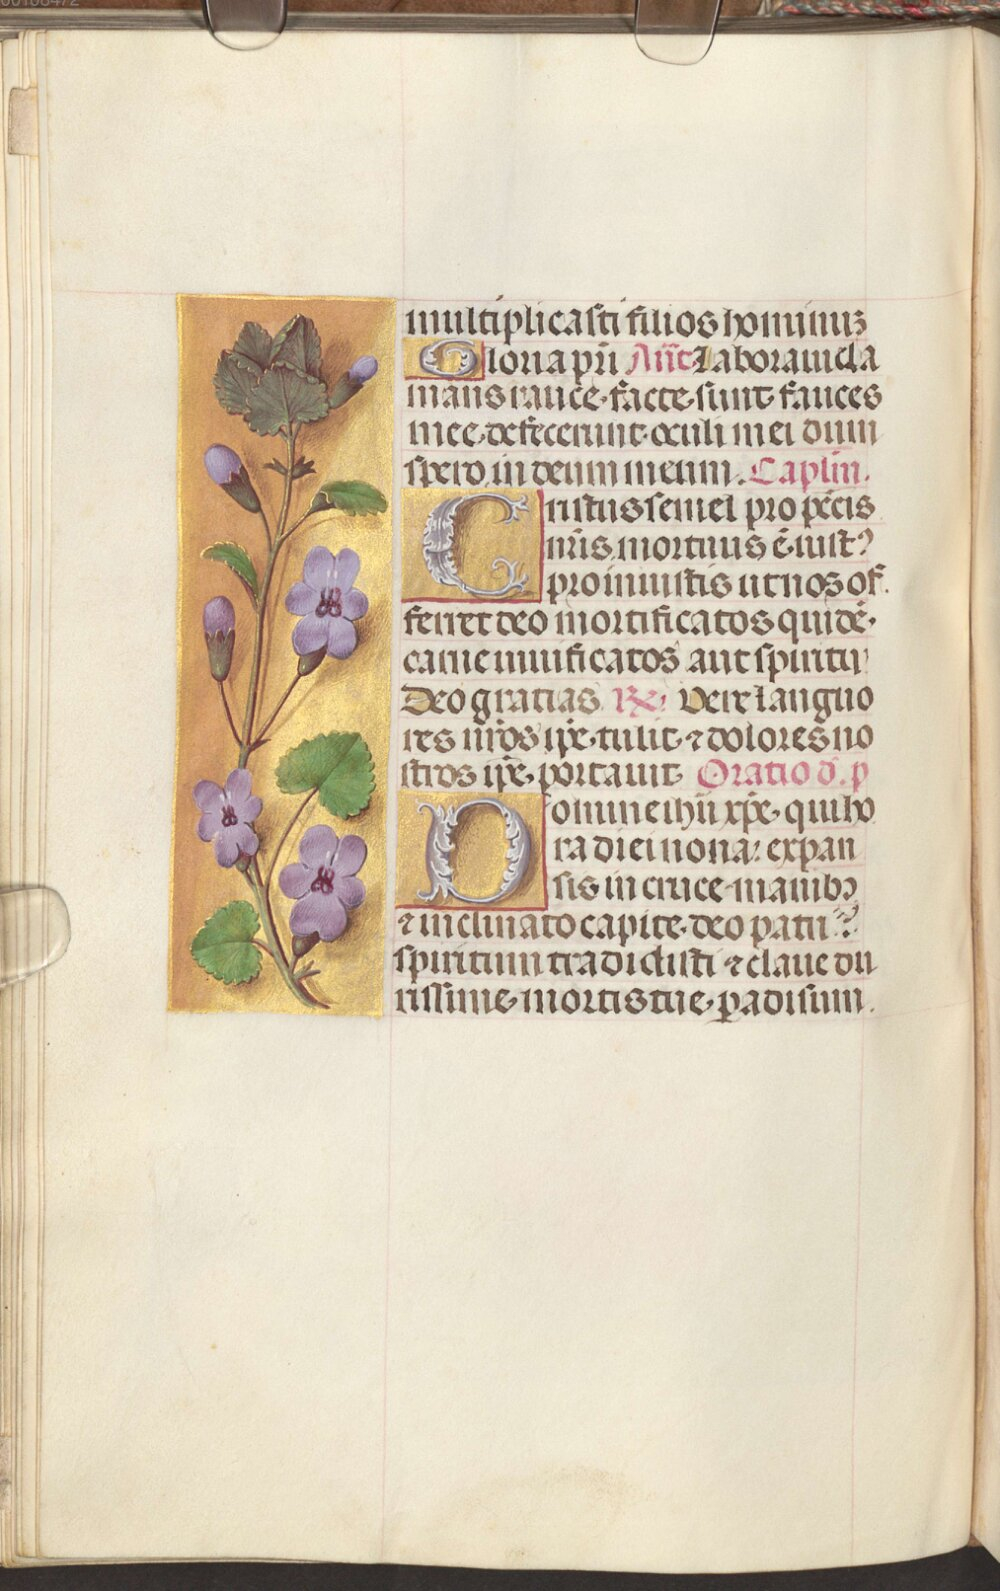 multiplicasti filios hominuz
Gloria pr̄i Ān̄t Laboraui cla
mans rauce facte sunt fauces
mee defecerunt oculi mei dum
spero in deum meum. Cap̄lm̄.
Cristus semel pro pc̄cis
nr̄is mortuus ē iust?
pro iniustis ut nos of
ferret deo mortificatos quidē
carne uiuificatos aut spiritu
Deo gratias R̷. Vere languo
res nr̄os ip̄e tulit ⁊ dolores no
stros ip̄e portauit Oratio d. p
Domine ihū xp̄e qui ho
ra diei nona: expan
sis in cruce manibꝫ
⁊ inclinato capite deo patri
spiritum tradidisti ⁊ claue du
rissime mortis tue ꝑadisum.